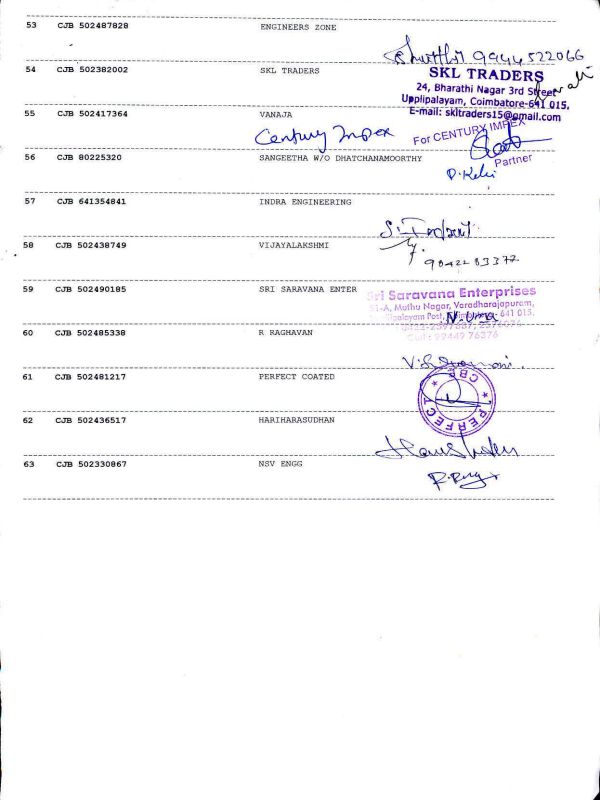 53 CJB 502487828 ENGINEERS ZONE
9944522066
54 CJB 502382002 SKL TRADERS
SKL TRADERS
24, Bharathi Nagar 3rd Street
Upplipalayam, Coimbatore-641 015,
E-mail: skltraders15@gmail.com
55 CJB 502417364 VANAJA
Century Impex
For CENTURY IMPEX
Partner
56 CJB 80225320 SANGEETHA W/O DHATCHANAMOORTHY
57 CJB 641354841 INDRA ENGINEERING
58 CJB 502438749 VIJAYALAKSHMI
59 CJB 502490185 SRI SARAVANA ENTER
Sri Saravana Enterprises
51-A, Muthu Nagar, Varadharajapuram,
Post, 641 015.
N. Uma
Cell : 99449 76376
60 CJB 502485338 R RAGHAVAN
61 CJB 502481217 PERFECT COATED
PERFECT
CBE
62 CJB 502436517 HARIHARASUDHAN
63 CJB 502330867 NSV ENGG